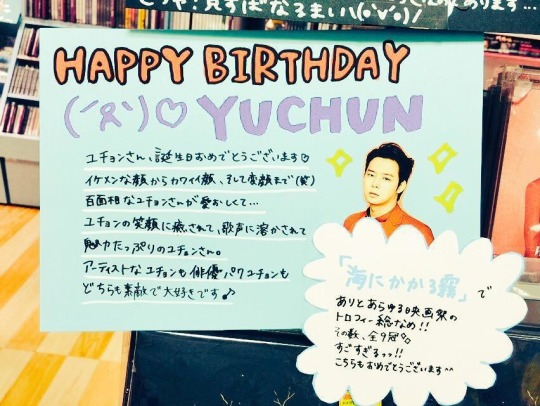 HAPPY BIRTHDAY
YUCHUN
ユチョンさん、誕生日おめでとうございます♡
イケメンな顔からカワイイ顔、そして変顔まで(笑)
百面相なユチョンさんが愛おしくて…
ユチョンの笑顔に癒されて、歌声に溶かされて
魅力たっぷりのユチョンさん。
アーティストなユチョンも俳優パクユチョンも
どちらも素敵で大好きです♪
「海にかかる霧」で
ありとあらゆる映画祭の
トロフィー総なめ!!
その数、全9冠
すごすぎるっっ!!
こちらもおめでとうございます^^